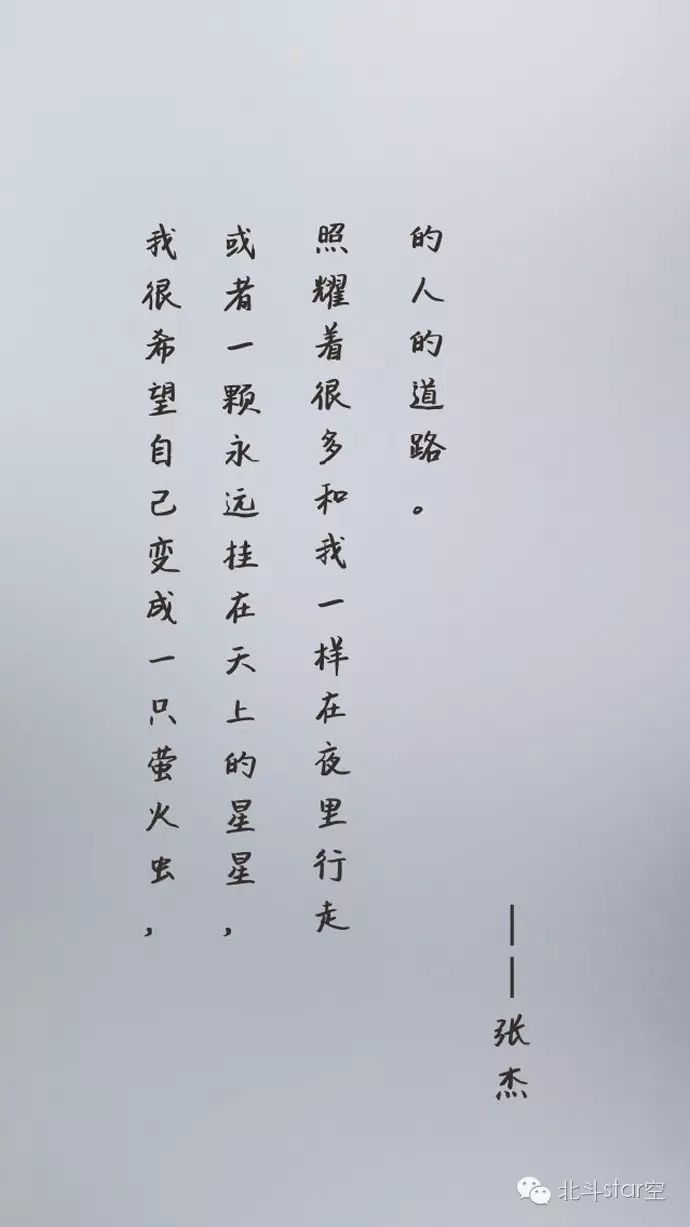 我很希望自己变成一只萤火虫，
或者一颗永远挂在天上的星星，
照耀着很多和我一样在夜里行走
的人的道路。
——张杰
北斗star空